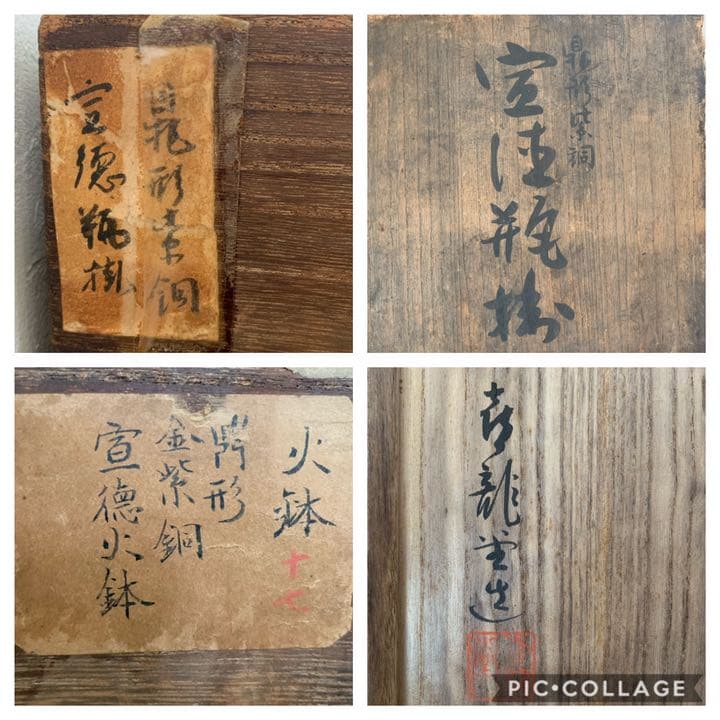 鼎形紫銅
宣德瓶掛
鼎形紫銅
宣德瓶掛
火鉢
十七
鼎形
金紫銅
宣德火鉢
龍堂造
PIC•COLLAGE